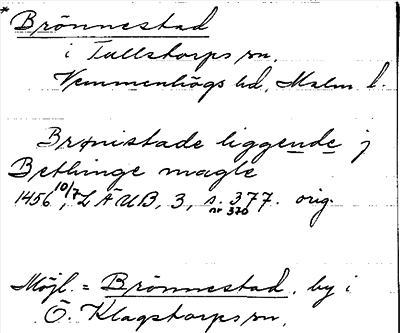 * Brönnestad
i Tullstorps sn,
Vemmenhögs hd, Malm. l.
Brønistade liggende j
Bethinge magle
1456 10/7, LÄUB, 3, s. 377. orig.
nr 370
Möjl. = Brönnestad, by i
Ö. Klagstorps sn,